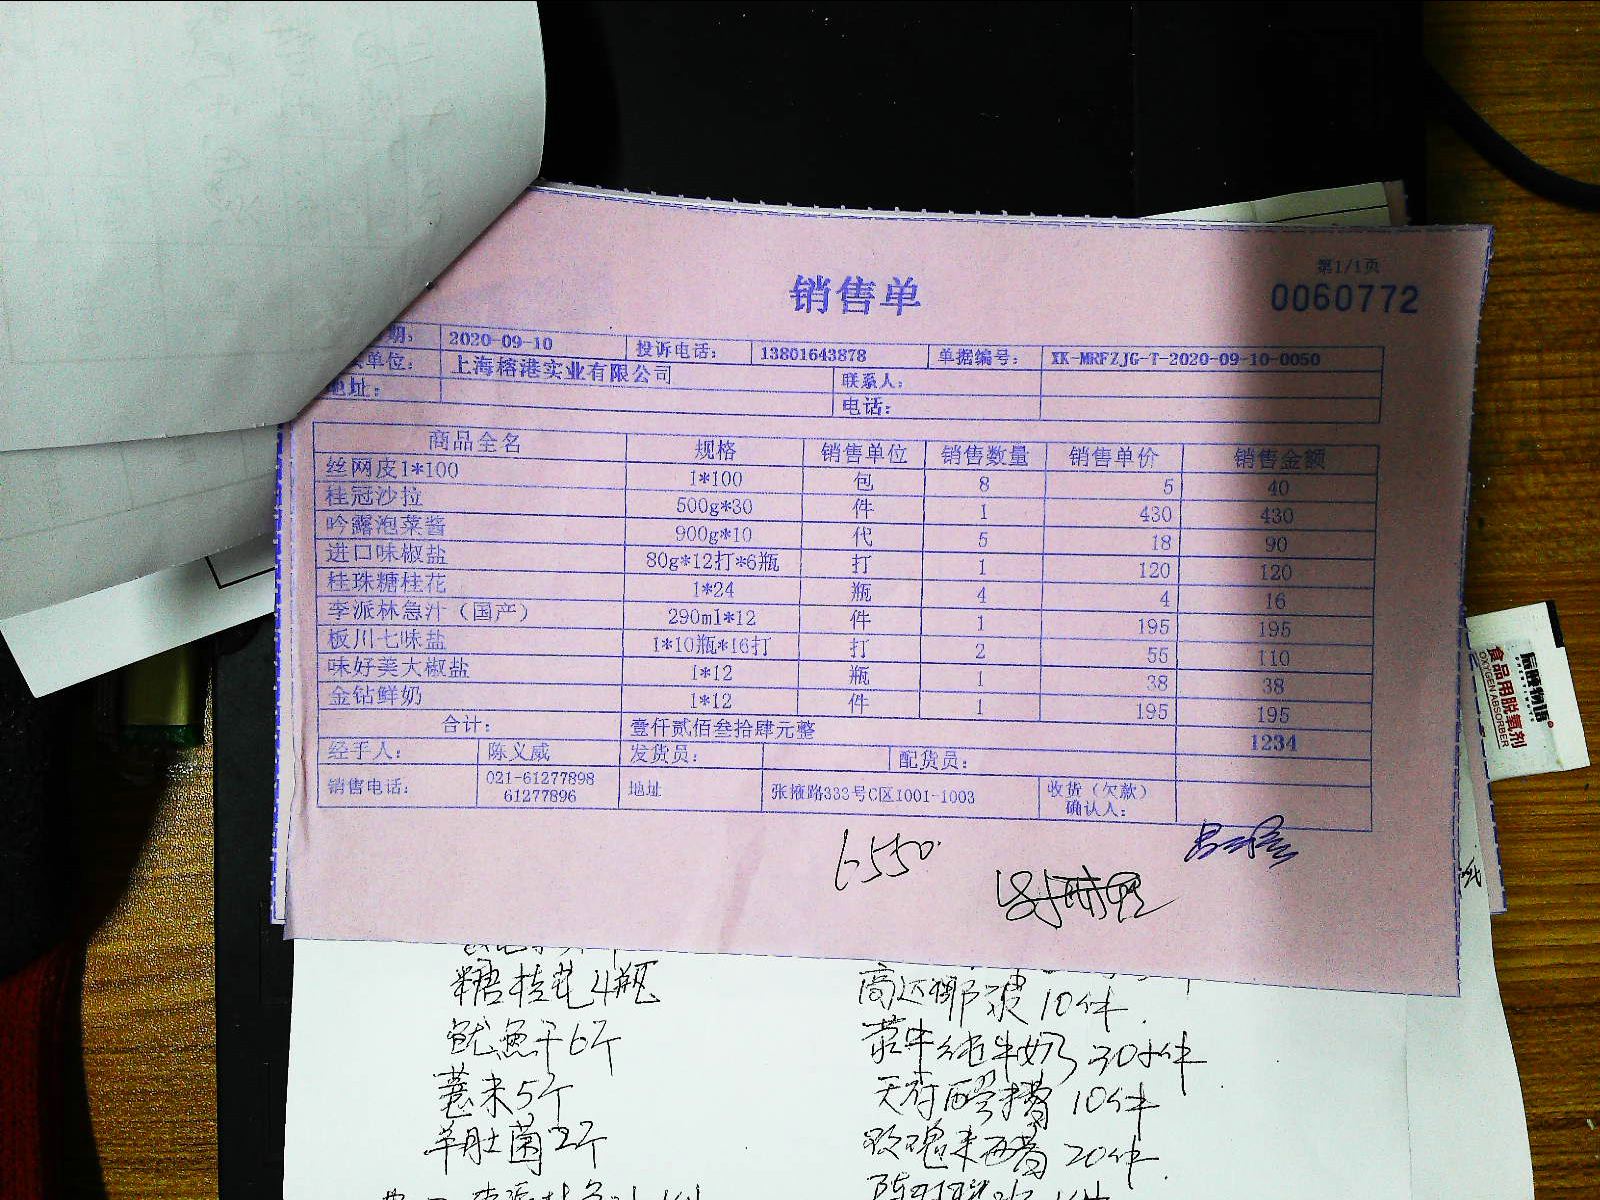 第1/1页
销售单
0060772
期： 2020-09-10 投诉电话： 13801643878 单据编号： XK-MRFZJG-T-2020-09-10-0050
单位： 上海榕港实业有限公司 联系人：
地址： 电话：
商品全名 规格 销售单位 销售数量 销售单价 销售金额
丝网皮1*100 1*100 包 8 5 40
桂冠沙拉 500g*30 件 1 430 430
吟露泡菜酱 900g*10 代 5 18 90
进口味椒盐 80g*12打*6瓶 打 1 120 120
桂珠糖桂花 1*24 瓶 4 4 16
李派林急汁（国产） 290ml*12 件 1 195 195
板川七味盐 1*10瓶*16打 打 2 55 110
味好美大椒盐 1*12 瓶 1 38 38
金钻鲜奶 1*12 件 1 195 195
合计： 壹仟贰佰叁拾肆元整 1234
经手人： 陈义威 发货员： 配货员：
销售电话： 021-61277898 61277896 地址 张掖路333号C区1001-1003 收货（欠款）确认人：
6550
食品用脱氧剂
OXYGEN ABSORBER
糖桂花4瓶
鱿鱼干6个
薏米5个
羊肚菌2个
10件
纯牛奶30件
天府 10件
20件